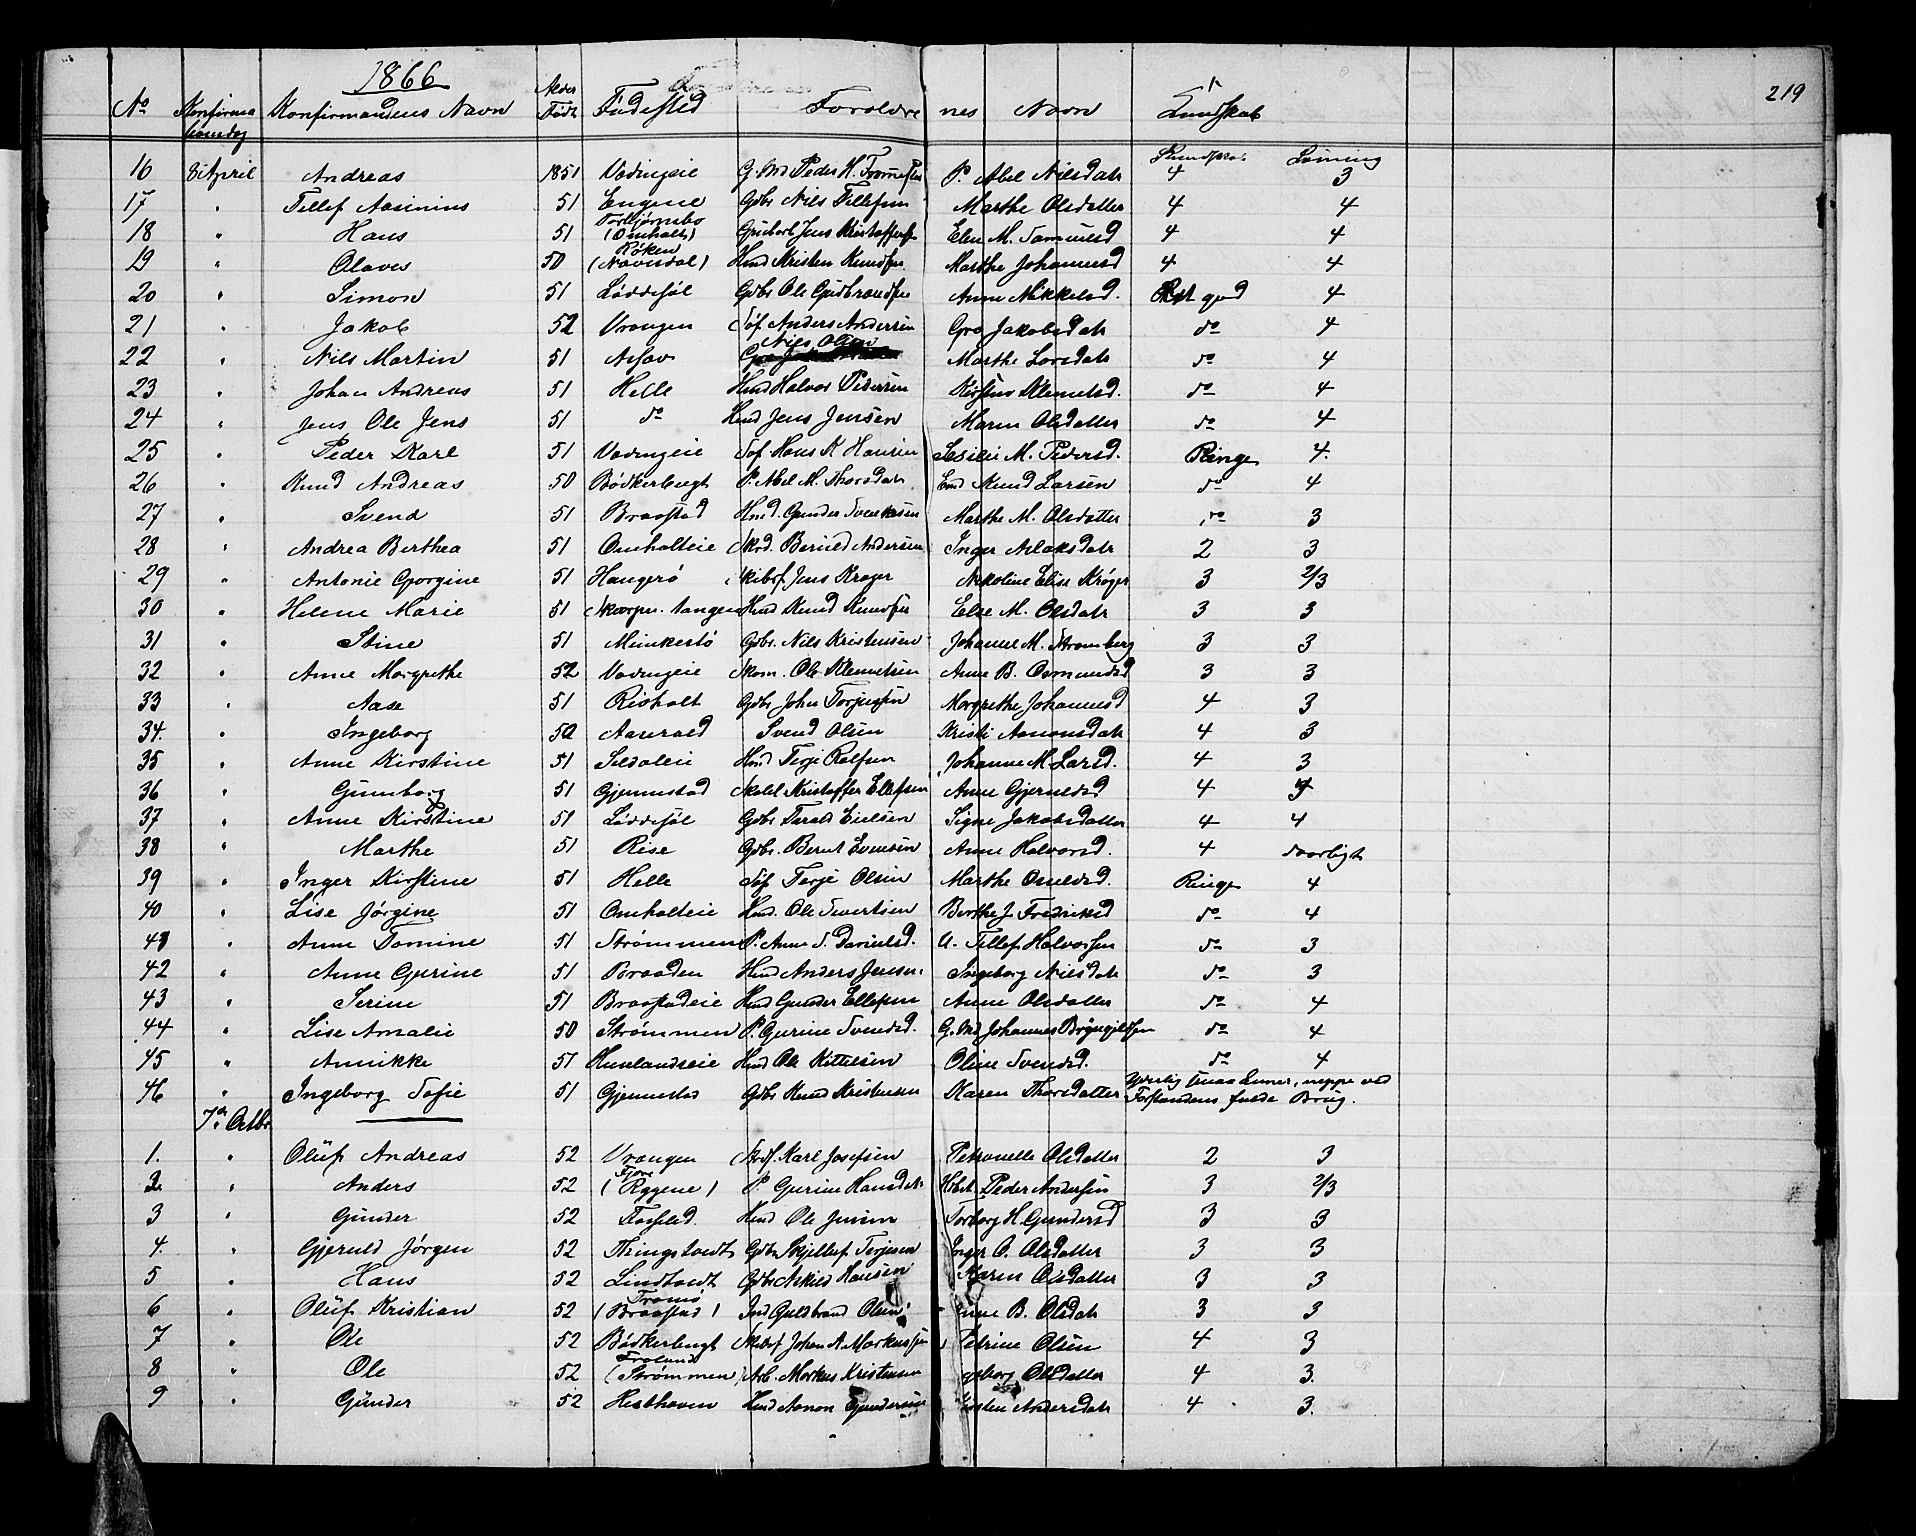 1866
219
No Konfirmandens Navn Alder Født Fødested Forældrenes Navn Kundskab
Læsning
16 8 April Andreas 1851 G. Md Peder H. P. Abel Nilsdatr 4 3
17 " Tellef Aasinius 51 Engene Gdbr Nils Tellefsen Marthe Olsdatter 4 4
18 " Hans 51 Torbjørnsbo (Omholt) Jens Kristoffersen Elen M. Samuelsd 4 4
19 " Olaves 50 Røken (Navesdal) Hmd Kristen Knudsen Marthe Johannesd 4 4
20 " Simon 51 Løddesøl Gdbr Ole Gudbrandsen Anne Mikkelsd. godt 4
21 " Jakob 52 Vrangen Søf. Anders Andersen Gro Jakobsdatr do 4
22 " Nils Martin 51 Nils Olsen Marthe Larsdatr do 4
23 " Johan Andreas 51 Helle Hmd Halvor Pedersen Klemetsd. do 4
24 " Jens Ole Jens 51 do Hmd Jens Jensen Maren Olsdatter do 4
25 " Peder Karl 51 Søf. Hans K Hansen Sesilie M. Pedersd. Ringe 4.
26 " Knud Andreas 50 Bødkerbugt P. Abel M. Thorsdatr Knud Larsen do 4
27 " Svend 51 Braastad Hmd. Gunder Svenksen Marthe M. Olsdatter do 3
28 " Andrea Berthea 51 Omholteie Skrd. Bernld Andersen Inger Aslaksdatr 2 3
29 " Antonie Georgine 51 Haugerø Skibsf. Jens Krøger Nikoline Elise Krøger 3 2/3
30 " Helene Marie 51 Hmd Knud Knudsen Else M. Olsdatr 3 3
31 " Stine 51 Munkestø Gdbr. Nils Kristensen Johanne M. Stromberg 3 3
32 " Anne Margrethe 52 Skom. Ole Klemetsen Anne B. Osmundsd 3 3
33 " Aase 51 Risholt Gdbr John Torjussen Margrethe Johannesd 4 3
34. " Ingeborg 52 Svend Olsen Kristi Aanonsdatr 4 3
35 " Anne Kirstine 51 Hmd Terje Rolfsen Johanne M. Larsd. 4 3
36 " Gunnborg 51 Gjennestad Skoleh Kristoffer Ellefsen Anne Gjeruldsd 4 3
37 " Anne Kirstine 51 Løddesøl Gdbr Tarald Eielsen Signe Jakobsdatter 4 4
38 " Marthe 51 Rise Gdbr. Bernt Evensen Anne Halvorsd. 4 daarligt
39 " Inger Kirstine 51 Helle Søf Terje Olsen Marthe Osuldsd. Ringe 4
40 " Lise Jørgine 51 Omholteie Hmd. Ole Sivertsen Berthe J. Fredriksd do 4
41 " Anne Tomine 51 Strømmen P. Anne S. Danielsd. U. Tellef Halvorsen do 3
42 " Anne Gurine 51 Braaden Hmd Anders Jensen Ingeborg Nilsdatr do 3
43 " Serine 51 Braastadeie Hmd Gunder Ellefsen Anne Olsdatter do 4
44 " Lise Amalie 50 Strømmen P. Gurine Svendsd. G. Md Johannes Bryngjelsen do 4
45 " Annikke 51 Hmd Ole Kittelsen Oline Svendsd. do 4
46 " Ingeborg Sofie 51 Gjennestad Gdbr Knud Kristensen Karen Thorsdatter neppe ved
Forstandens fulde Brug.
7de Octbr
1. " Oluf Andreas 52 Vrangen Karl Josefsen Petronelle Olsdatter 2 3
2. " Anders 52 Fjære (Rygene) P. Gurine Hansdatr Peder Andersen 3 2/3
3 " Gunder 52 Hmd Ole Jensen Torborg H. Gundersd 3 3
4. " Gjeruld Jørgen 52 Thingstvedt Gdbr Kjellef Terjesen Inger O. Olsdatter 3 3
5 " Hans 52 Lindtvedt Gdbr Askild Hansen Karen Olsdatter 3 3
6 " Oluf Kristian 52 Tromø (Braastad) Ind Guldbrand Olsen Anne B. Olsdatr 3 3
7 " Ole 52 Bødkerbugt Skibsf Johan A. Markussen Petrine Olsen 4 3
8 " Ole 52 Froland (Strømmen) Arb. Markus Kristensen Ingeborg Olsdatter 4 3.
9 " Gunder 52 Hesthaven Hmd Aanon Gundersen Kirsten Andersdatr 4 3.